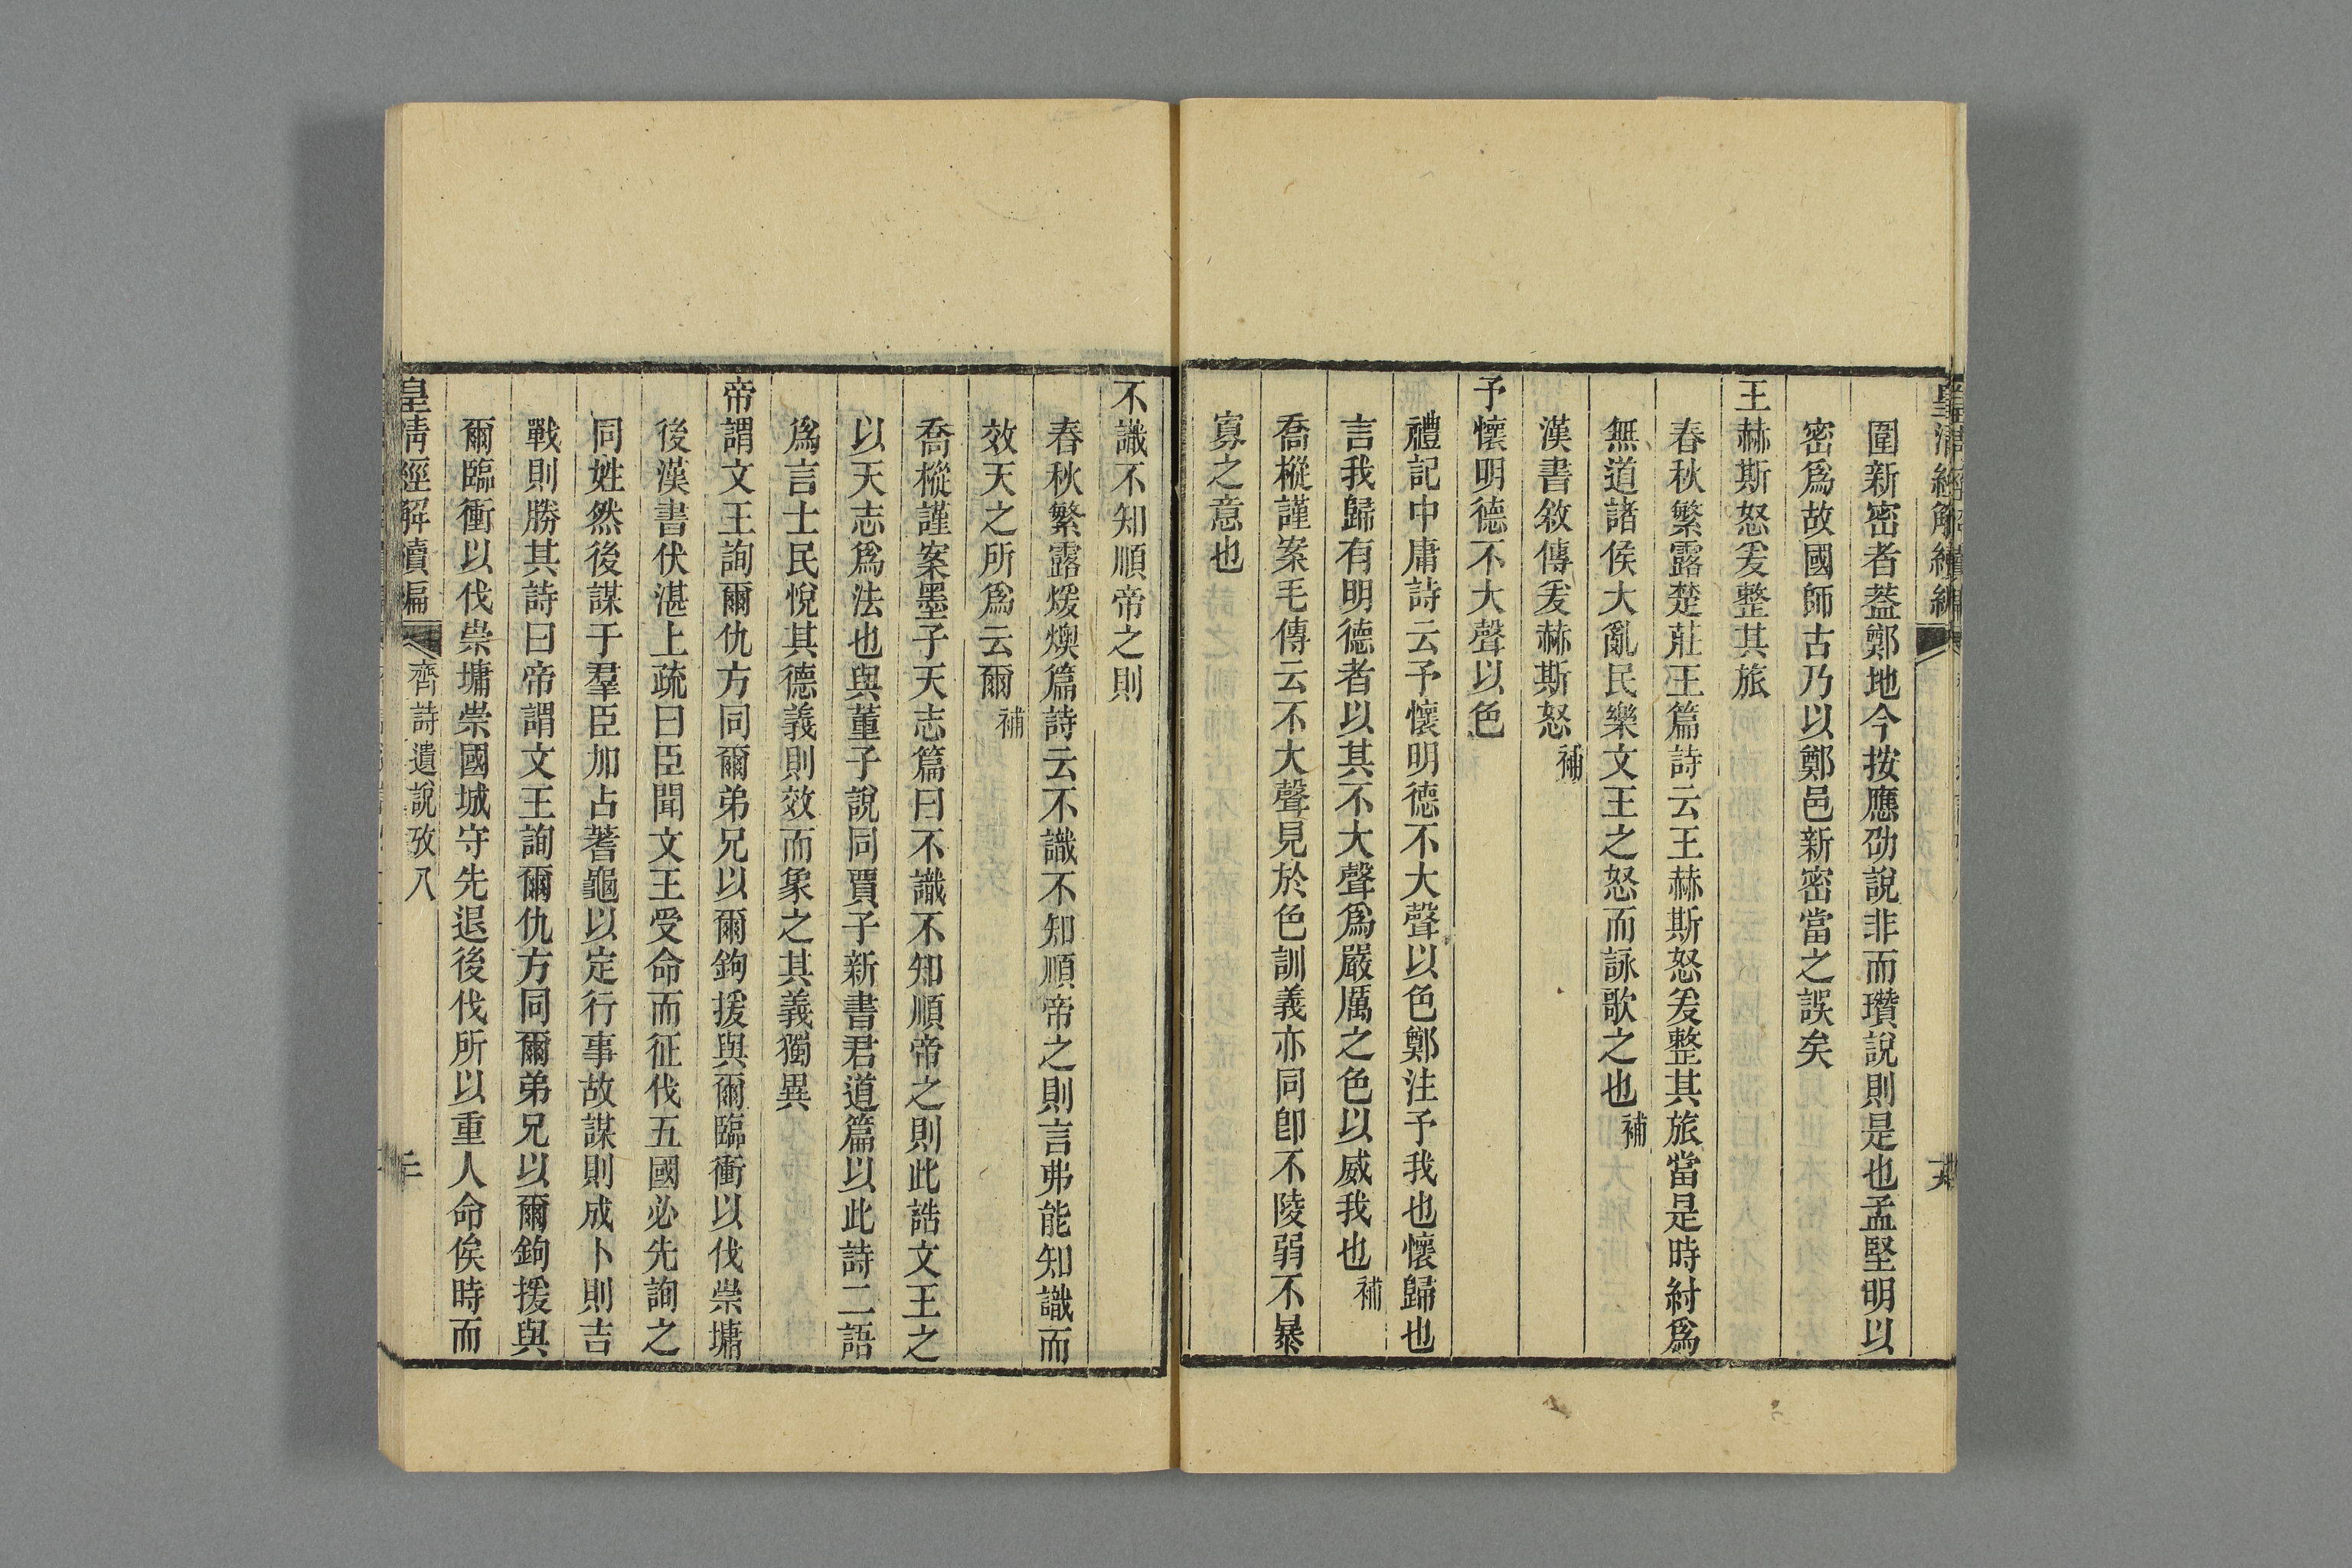 皇清經解續編
圍新密者葢鄭地今按應劭說非而瓚說則是也孟堅明以
密爲故國師古乃以鄭邑新密當之誤矣
王赫斯怒爰整其旅
春秋繁露楚莊王篇詩云王赫斯怒爰整其旅當是時紂爲
無道諸侯大亂民樂文王之怒而詠歌之也補
漢書敘傳爰赫斯怒補
予懷明德不大聲以色
禮記中庸詩云予懷明德不大聲以色鄭注予我也懷歸也
言我歸有明德者以其不大聲爲嚴厲之色以威我也補
喬樅謹案毛傳云不大聲見於色訓義亦同卽不陵弱不暴
寡之意也
不識不知順帝之則
春秋繁露煖燠篇詩云不識不知順帝之則言弗能知識而
效天之所爲云爾補
喬樅謹案墨子天志篇曰不識不知順帝之則此誥文王之
以天志爲法也與董子說同賈子新書君道篇以此詩二語
爲言士民悅其德義則效而象之其義獨異
帝謂文王詢爾仇方同爾弟兄以爾鉤援與爾臨衝以伐崇墉
後漢書伏湛上疏曰臣聞文王受命而征伐五國必先詢之
同姓然後謀于羣臣加占蓍龜以定行事故謀則成卜則吉
戰則勝其詩曰帝謂文王詢爾仇方同爾弟兄以爾鉤援與
爾臨衝以伐崇墉崇國城守先退後伐所以重人命俟時而
皇清經解續編 齊詩遺說攷八